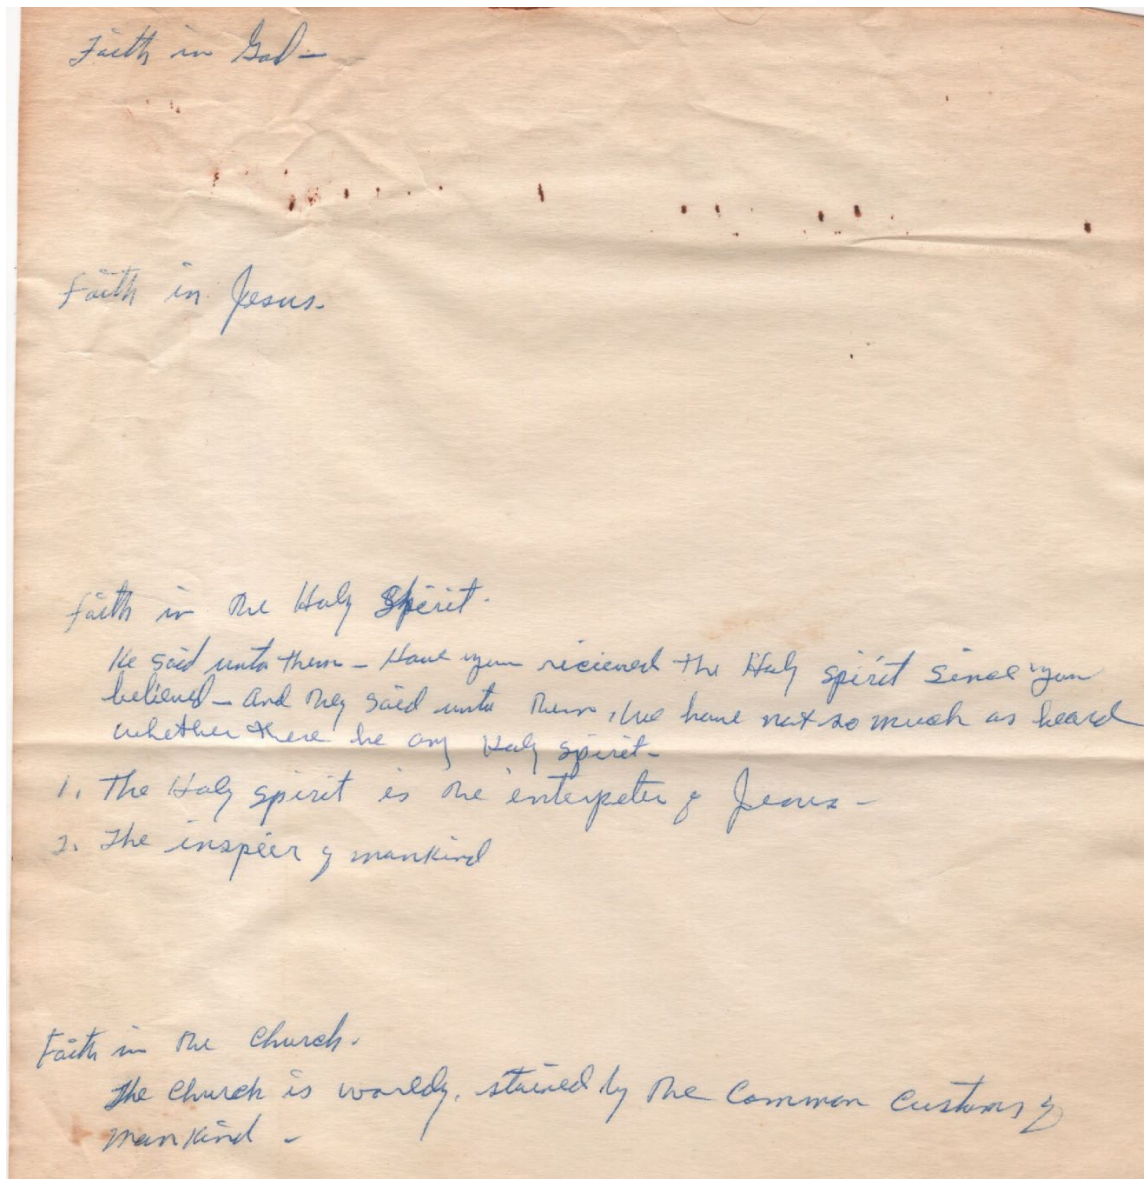 Faith in God –
Faith in Jesus.
Faith in the Holy Spirit.
He said unto them – Have you recieved the Holy spirit since you
believed – and they said unto them, We have not so much as heard
whether there be any Holy spirit –
1. The Holy spirit is the interpeter of Jesus –
2. The inspier of mankind
Faith in the church.
The church is worldy, stained by the common customs of
mankind –